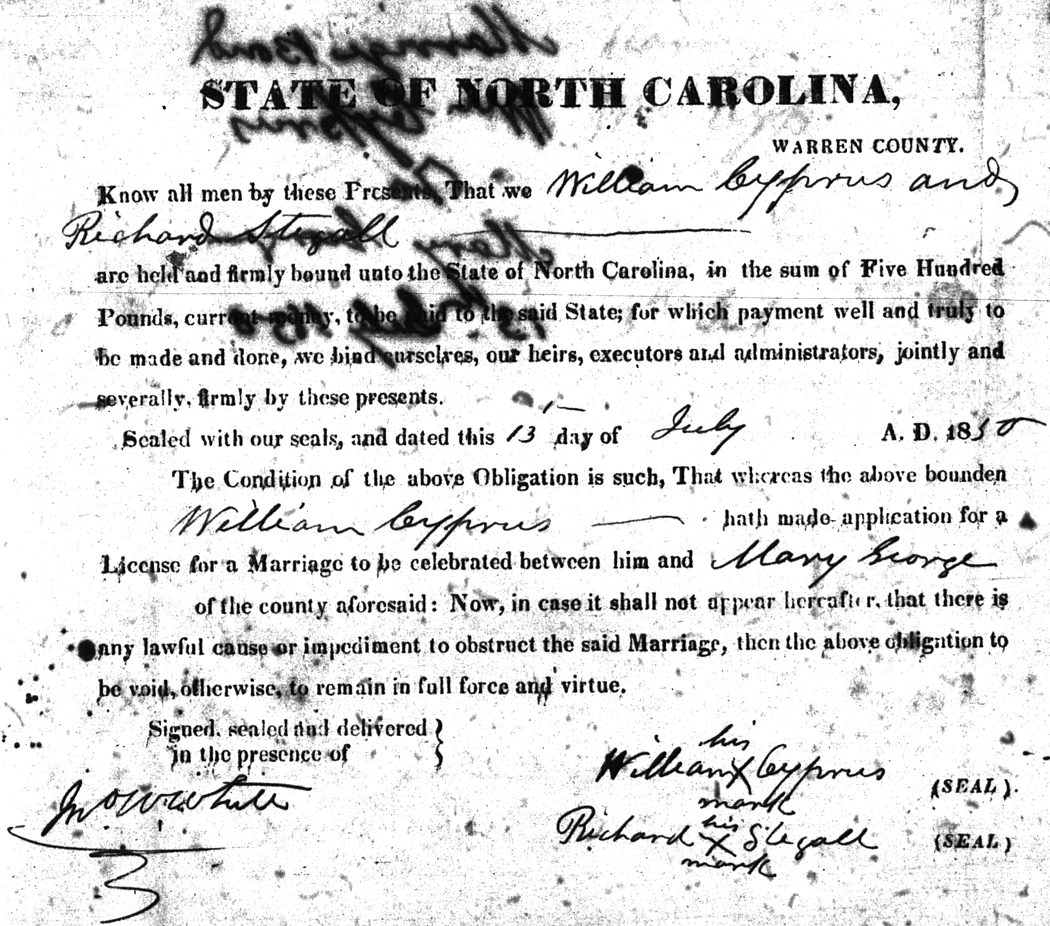 STATE OF NORTH CAROLINA,
WARREN COUNTY.
Know all men by these Presents, That we William Cyprus and
Richard Stegall
are held and firmly bound unto the State of North Carolina, in the sum of Five Hundred
Pounds, current money, to be paid to the said State; for which payment well and truly to
be made and done, we bind ourselves, our heirs, executors and administrators, jointly and
severally, firmly by these presents.
Sealed with our seals, and dated this 13 day of July A. D. 1850
The Condition of the above Obligation is such, That whereas the above bounden
William Cyprus hath made application for a
License for a Marriage to be celebrated between him and Mary George
of the county aforesaid: Now, in case it shall not appear hereafter, that there is
any lawful cause or impediment to obstruct the said Marriage, then the above obligation to
be void, otherwise, to remain in full force and virtue.
Signed, sealed and delivered
in the presence of
Jno W White
his
William X Cyprus (SEAL).
mark
his
Richard X Stegall (SEAL)
mark